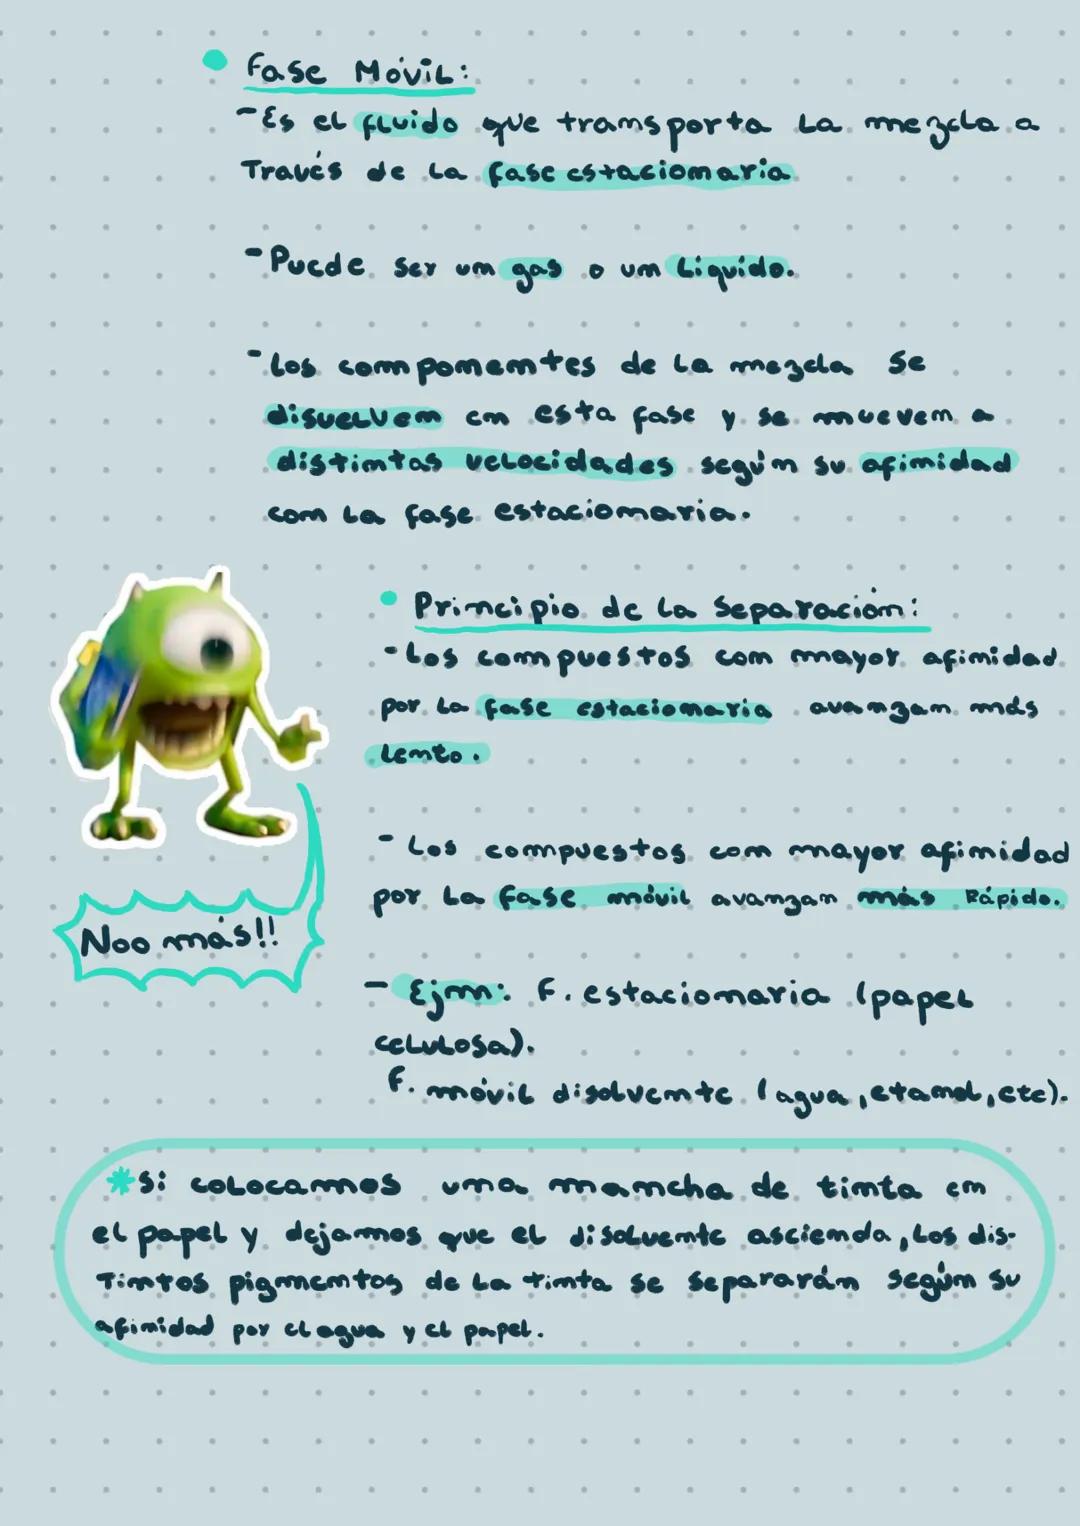 Fase Móvil:
- Es el fluido que transporta la mezcla a
Través de la fase estacionaria.
- Puede ser un gas o un Líquido.
- Los componentes de la mezcla se
disuelven en esta fase y se mueven a
distintas velocidades según su afinidad
con la fase estacionaria.
Principio de la Separación:
- Los compuestos con mayor afinidad
por la fase estacionaria avanzan más
Lento.
- Los compuestos con mayor afinidad
por la fase móvil avanzan más Rápido.
Noo más!!
- Ejm: F. estacionaria (papel
celulosa).
F. móvil disolvente (agua, etanol, etc).
*Si colocamos una mancha de tinta en
el papel y dejamos que el disolvente ascienda, los dis-
Tintos pigmentos de la tinta se separarán según su
afinidad por el agua y el papel.